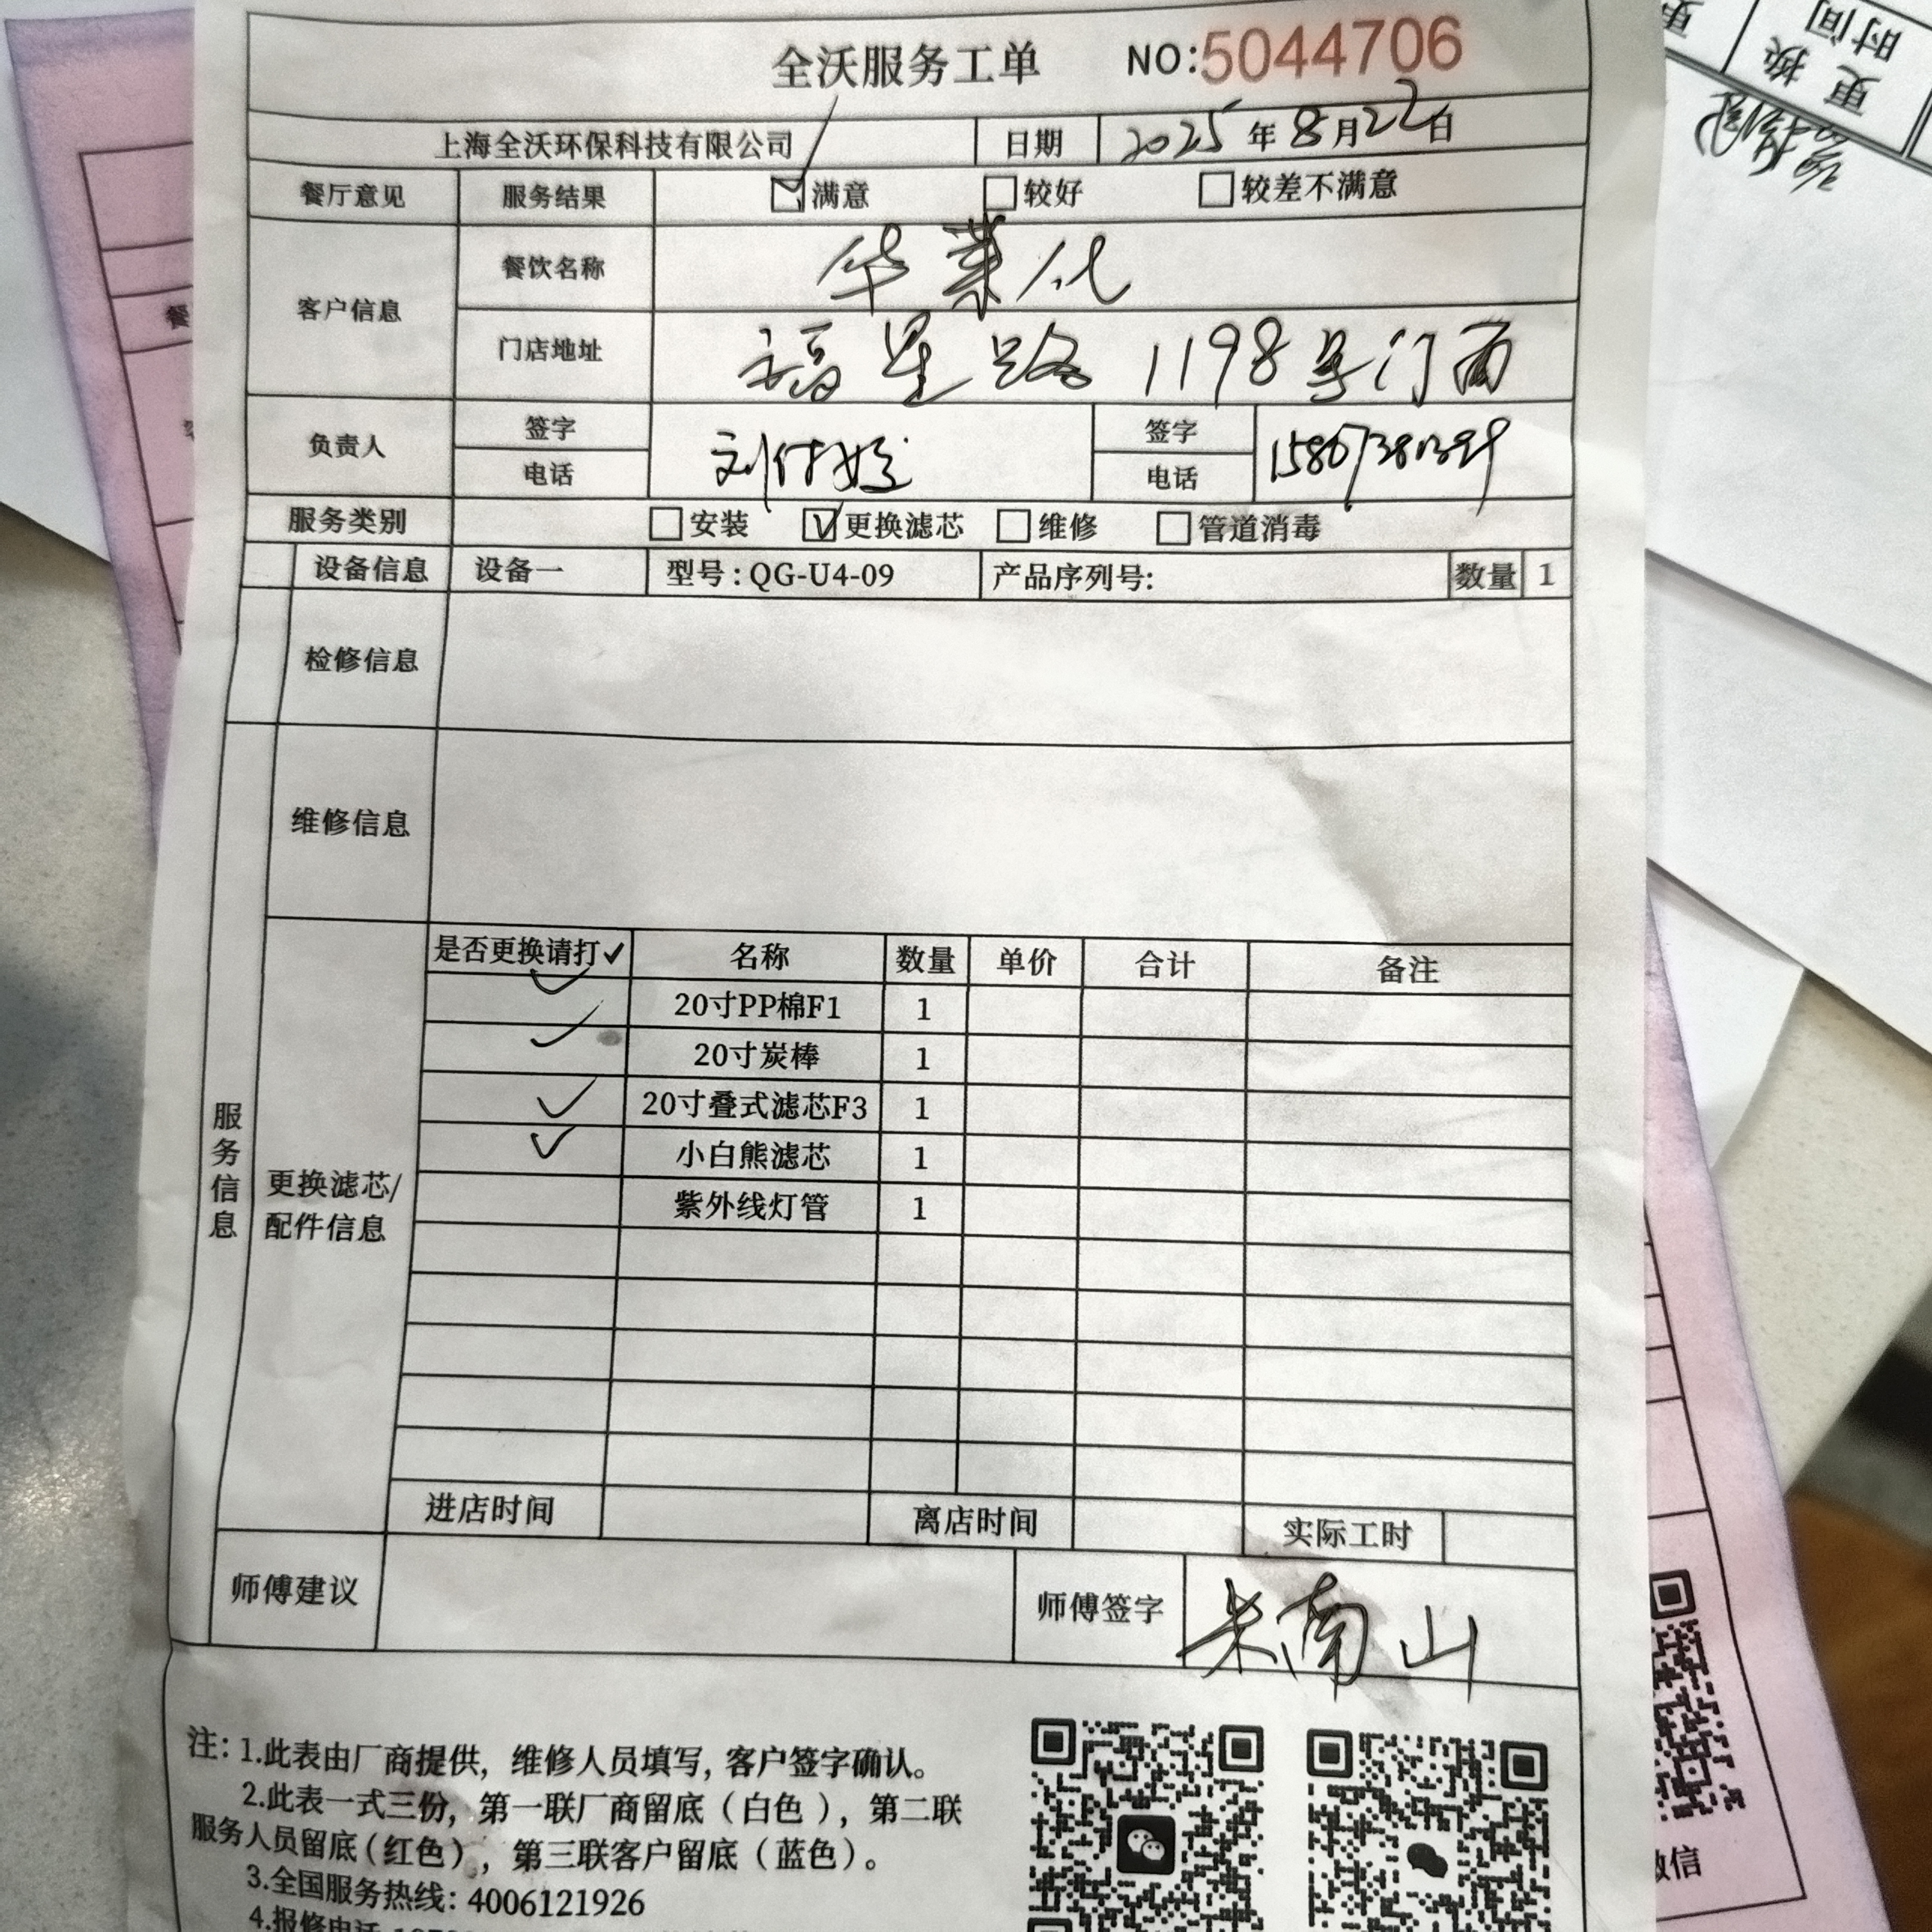 全沃服务工单 NO:5044706
上海全沃环保科技有限公司 日期 2025年8月22日
餐厅意见 服务结果 满意 较好 较差不满意
客户信息 餐饮名称 华莱仕
门店地址 福星路1198号门面
负责人 签字 签字
电话 电话
服务类别 安装 更换滤芯 维修 管道消毒
设备信息 设备一 型号:QG-U4-09 产品序列号: 数量 1
检修信息
维修信息
服务信息
更换滤芯/
配件信息
是否更换请打✓ 名称 数量 单价 合计 备注
✓ 20寸PP棉F1 1
✓ 20寸炭棒 1
✓ 20寸叠式滤芯F3 1
✓ 小白熊滤芯 1
紫外线灯管 1
进店时间 离店时间 实际工时
师傅建议 师傅签字 朱南山
注: 1.此表由厂商提供, 维修人员填写, 客户签字确认。
2.此表一式三份, 第一联厂商留底（白色）, 第二联
服务人员留底(红色), 第三联客户留底（蓝色）。
3.全国服务热线: 4006121926
4.报修电话
更换
时间
微信